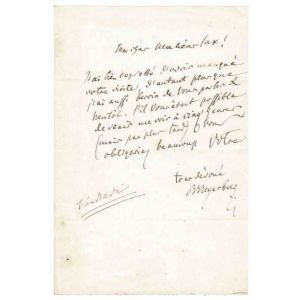 Mon cher Monsieur Sax!
J'ai bien regretté d'avoir manqué
votre visite, d'autant plus que
j'ai aussi besoin de vous parler
bientôt. S'il vous était possible
de venir me voir à cinq heures
(mais pas plus tard) vous
obligeriez beaucoup Votre
tout dévoué
Meyerbeer
Vendredi